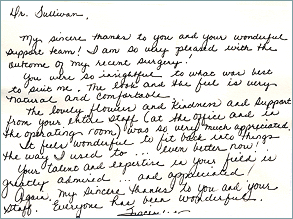 Dr. Sullivan,
My sincere thanks to you and your wonderful
support team! I am so very pleased with the
outcome of my recent surgery!
You were so insightful to what was best
to suit me. The look and the feel is very
natural and comfortable.
The lovely flowers and kindness and support
from your entire staff (at the office and in
the operating room) was so very much appreciated.
It feels wonderful to fit back into things
the way I used to ... even better now!
Your talent and expertise in your field is
greatly admired ... and appreciated!
Again, my sincere thanks to you and your
staff. Everyone has been wonderful.